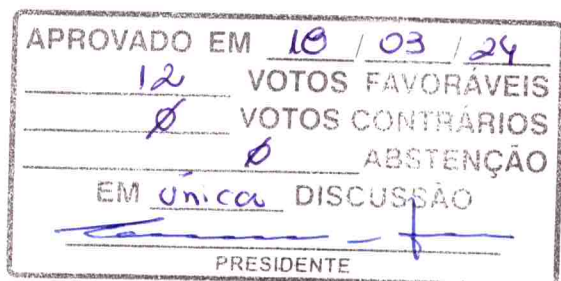 APROVADO EM 18 / 03 / 24
12 VOTOS FAVORÁVEIS
Ø VOTOS CONTRÁRIOS
Ø ABSTENÇÃO
EM única DISCUSSÃO
PRESIDENTE